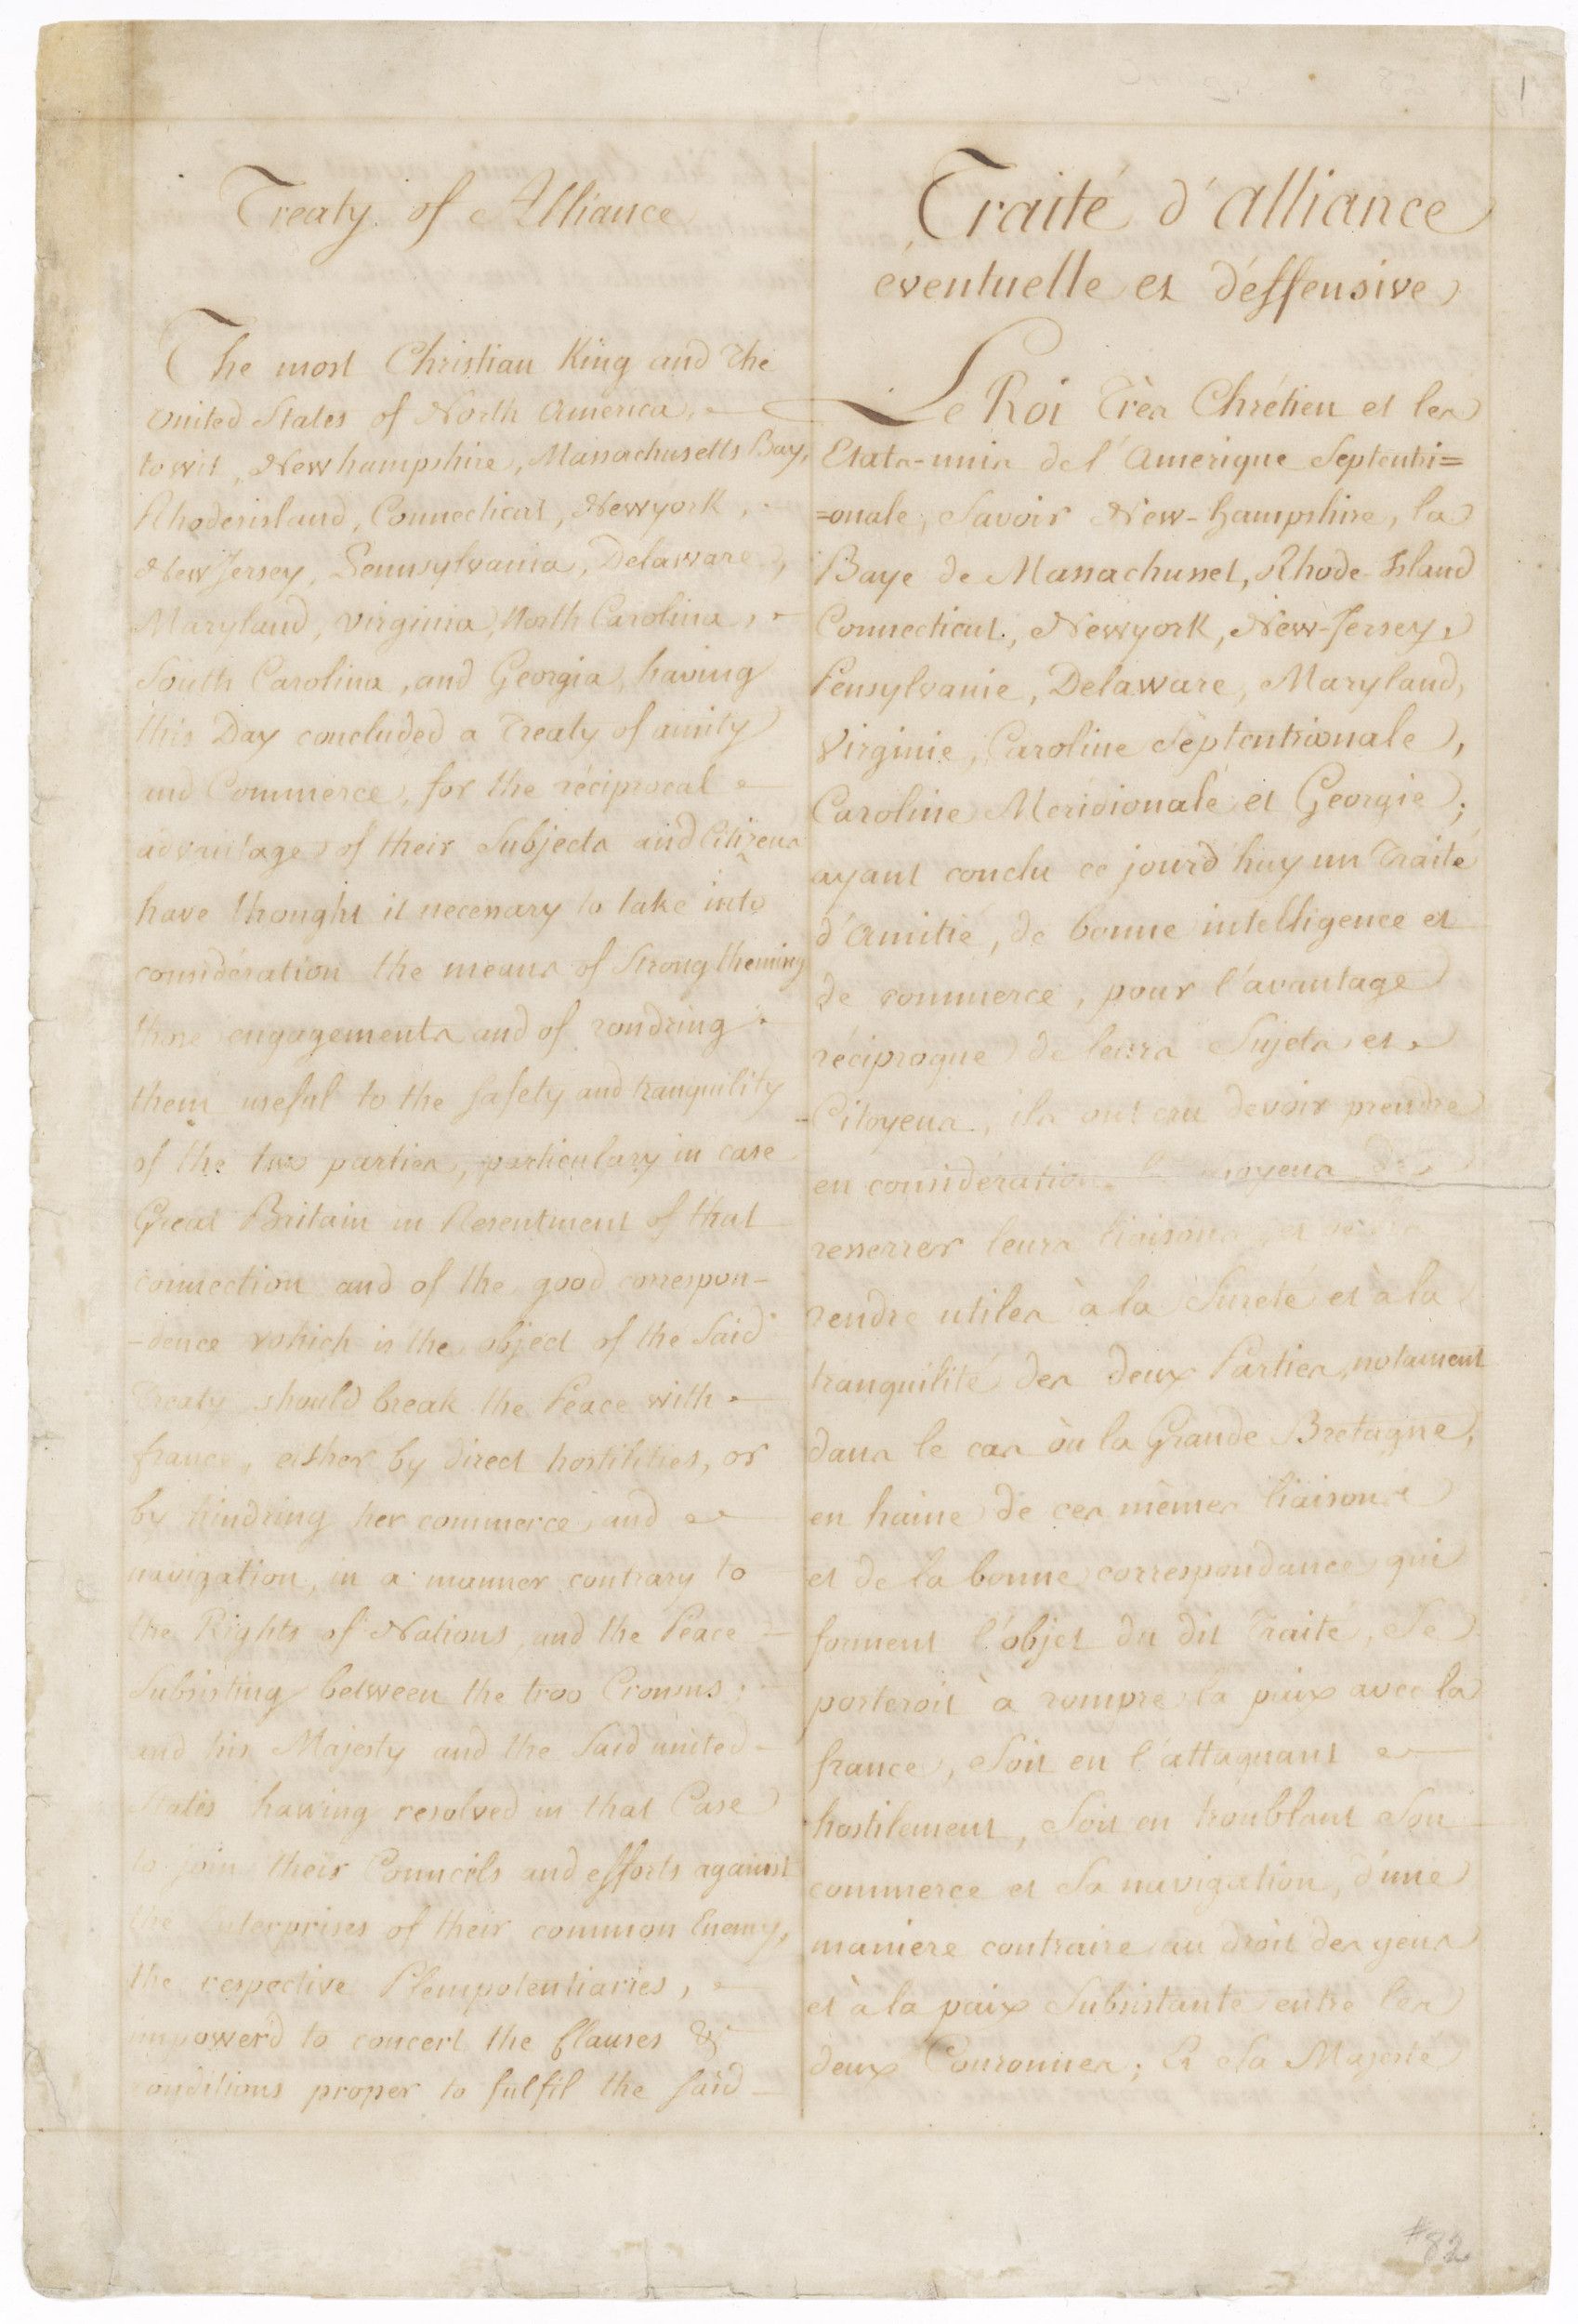 1
Treaty of Alliance
The most Christian King and the
united States of North America,
to wit, New hampshire, Massachusetts Bay,
Rhodesisland, Connecticut, Newyork,
New Jersey, Pennsylvania, Delaware,
Maryland, virginia, North Carolina,
South Carolina, and Georgia, having
this Day concluded a Treaty of amity
and Commerce, for the réciprocal
advantage of their Subjects and Citizens
have thought it necessary to take into
considération the means of Strongthening
those engagements and of rondring
them useful to the safety and tranquility
of the two parties, particulary in case
Great Britain in Resentment of that
connection and of the good correspon-
-dence which is the object of the Said
Treaty should break the Peace with
france, either by direct hostilities, or
by hindring her commerce and
navigation, in a manner contrary to
the Rights of Nations, and the Peace
Subsisting between the two Crowns;
and his Majesty and the Said united
States having resolved in that Case
to join their Councils and efforts against
the Enterprises of their common Enemy,
the respective Plenipotentiaries,
impower'd to concert the Clauses &
conditions proper to fulfil the said
Traité d'alliance
éventuelle et déffensive
Le Roi Très Chrétien et les
Etats-unis de l'Amerique Septentri=
=onale, Savoir New-hampshire, la
Baye de Massachusset, Rhode-Island
Connecticut, Newyork, New-Jersey,
Pensylvanie, Delaware, Maryland,
Virginie, Caroline Septentrionale,
Caroline Méridionale et Georgie;
ayant conclu ce jourd'huy un Traité
d'Amitié, de bonne intelligence et
de commerce, pour l'avantage
réciproque de leurs Sujets et
Citoyens, ils ont cru devoir prendre
en considération moyens de
resserrer leurs liaisons et de
rendre utiles à la Sureté et à la
tranquilité des deux Parties, notament
dans le cas où la Grande Bretagne,
en haine de ces mêmes liaisons
et de la bonne correspondance qui
forment l'objet du dit Traité, Se
porteroit à rompre la paix avec la
france, Soit en l'attaquant
hostilement, Soit en troublant Son
commerce et Sa navigation, d'une
maniere contraire au droit des gens
et à la paix Subsistante entre les
deux Couronnes; Et Sa Majesté
#82